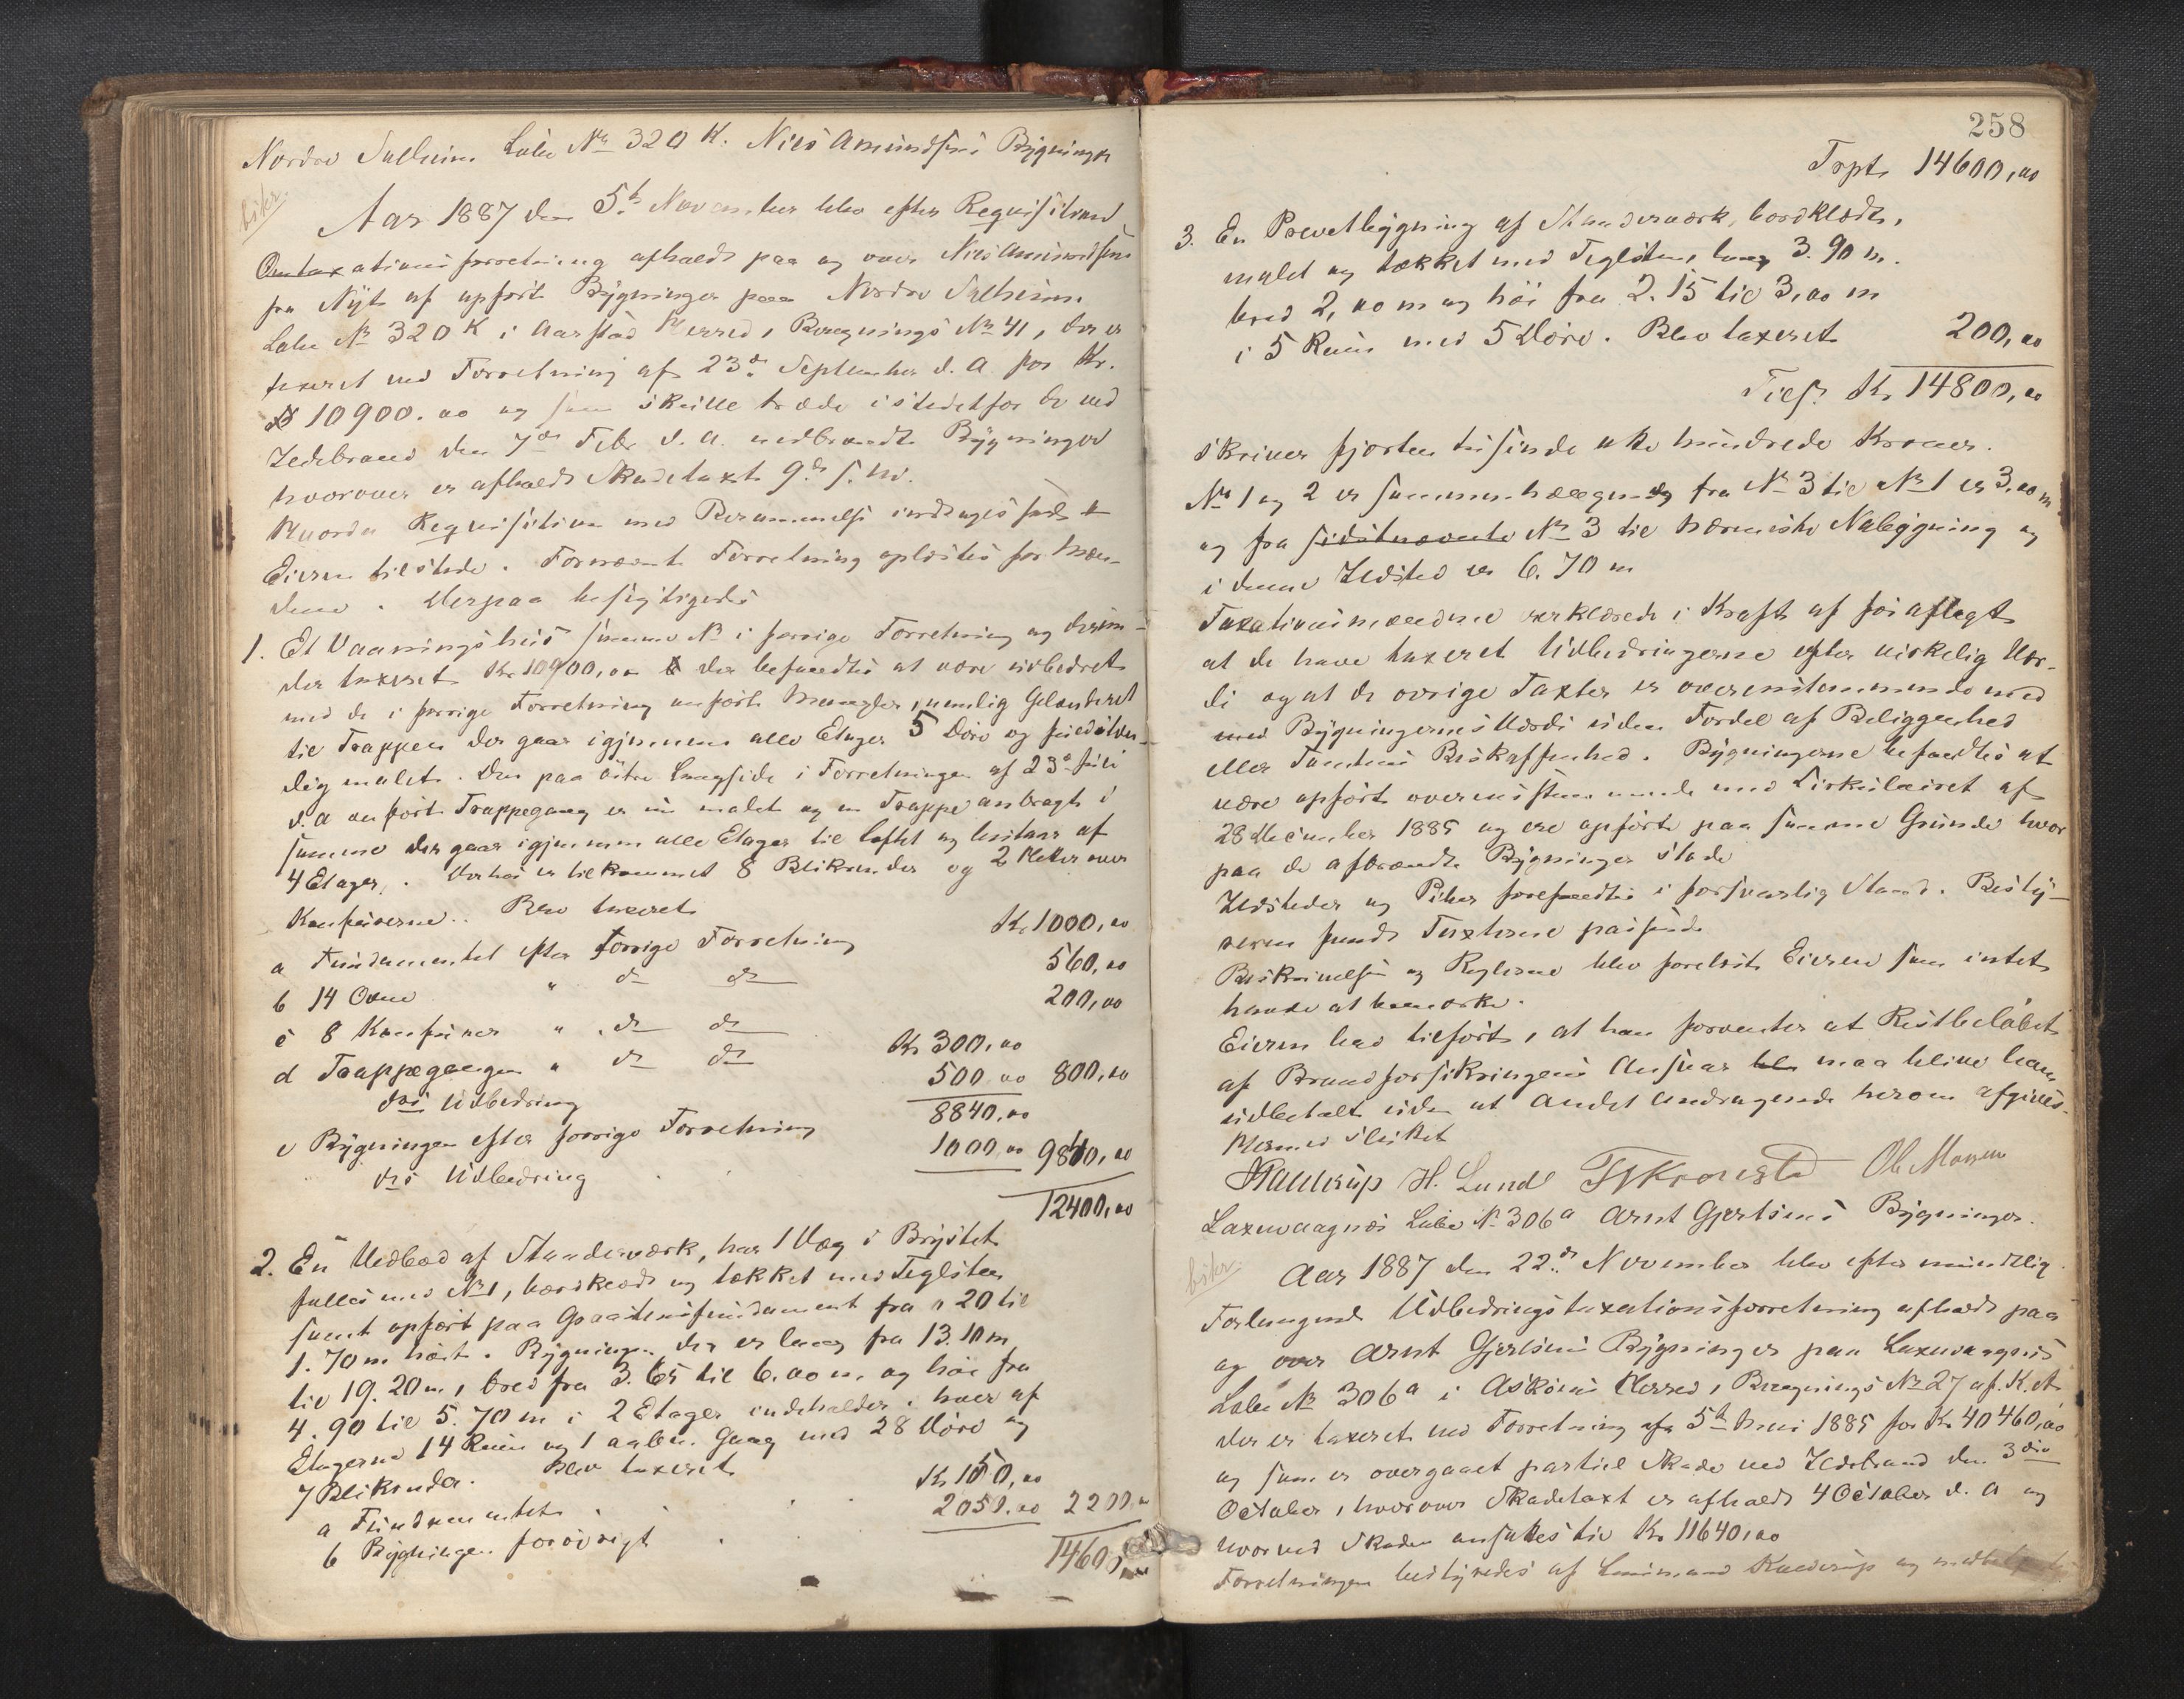 Nordre Solheim Løbe № 320 K. Niels Amundsens Bygninger
bskr.
Aar 1887 den 5te November blev efter Requisition
Omtaxationsforretning afholdt paa og over Niels Amundsens
fra Nyt af opførte Bygninger paa Nordre Solheim
Løbe № 320 K i Aarstad Herred, Beregnings № 41, der er
taxeret ved Forretning af 23de September d. A. for Kr.
10900.00 og som skulle træde istedetfor de ved
Ildebrand den 7de Febr d. A. nedbrændte Bygninger
hvorover er afholdt Skadetaxt 9de s. M.
Requisition med Berammelse indtages
Eieren tilstede. Fornævnte Forretning oplæstes for Mæn-
dene. Derpaa besigtigedes
1. Et Vaaningshus samme № i forrige Forretning og derun-
der taxeret Kr 10900,00 der befandtes at være udbedret
med de i forrige Forretning anførte Mangler, nemlig Gelænderet
til Trappen der gaar igjennem alle Etager 5 Døre og fuldstæn-
dig malet. Den paa östre Langside i Forretningen af 23de
d. A anførte Trappegang er nu malet og en Trappe anbragt i
samme der gaar igjennem alle Etager til loftet og bestaar af
4 Etager. Derhos er tilkommet 8 Blikrender og 2 Hetter over
Komfurerne. Blev taxeret
a Fundamentet efter forrige Forretning Kr 1000,00
b 14 Ovne " do do 560,00
c 8 Komfurer " do do 200,00
d Trappegangen " do do Kr 300,00
dens Udbedring 500.00 800,00
e Bygningen efter forrige Forretning 8840,00
dens Udbedring 1000,00 9840,00
12400,00
2. En Vedbod af Standerværk, har 1 Væg i Bryštet
fælles med № 1, bordklædt og tækket med Teglsten
samt opført paa Graastensfundament fra 0 20 til
1.70 m høit. Bygningen der er lang fra 13.10 m
til 19.20 m, bred fra 3.65 til 6.00 m og høi fra
4.90 til 5.70 m i 2 Etager indeholder i hver af
Etagerne 14 Rum og 1 aaben Gang med 28 Døre og
7 Blikrender. Blev taxeret
a Fundamentet Kr 150,00
b Bygningen forøvrigt 2050.00 2200,00
14600,00
258
Tspt. 14600,00
3. En Privetbygning af Standerværk, bordklædt,
malet og tækket med Teglsten, lang 3.90 m.
bred 2,00 m og høi fra 2.15 til 3,00 m
i 5 Rum med 5 Døre. Blev taxeret 200,00
Tils. Kr 14800,00
skriver fjorten tusinde otte hundrede Kroner.
№ 1 og 2 er sammenhængende og fra № 3 til № 1 er 3.00 m
og fra sidstnævnte № 3 til nærmeste Nabobygning og
i denne Ildsted er 6.70 m
Taxationsmændene erklærede i Kraft af før aflagt
at de have taxeret Udbedringerne efter virkelig Vær-
di og at de øvrige Taxter er overensstemmende med
med Bygningernes Værdi uden Fordel af Beliggenhed
eller Tomtens Beskaffenhed. Bygningerne befandtes at
være opført overensstemmende med Cirkulairet af
28 December 1885 og ere opført paa samme Grunde hvor
paa de afbrændte Bygninger stode
Ildsteder og Piber forefandtes i forsvarlig Stand. Besty-
reren fandt Taxterne passende
Beskrivelsen og Reglerne blev forelæst Eieren som intet
havde at bemærke.
Eieren lod tilføre, at han forventer at Restbeløbet
af Brandforsikringens Ansvar maa blive ham
udbetalt uden at andet Andragende herom afgives.
Hermed sluttet
H. Lund Ole Monsen
Laxevaagnes Løbe № 306a Arnt Gjertsens Bygninger.
bskr.
Aar 1887 den 22de November blev efter mundtlig
Forlangende Udbedringstaxationsforretning afholdt paa
og over Arnt Gjertsens Bygninger paa Laxevaagnes
Løbe № 306a i Askøens Herred, Beregnings № 27 af K. A
der er taxeret ved Forretning af 5te Mai 1885 for Kr 40460,00
og som er overgaaet partiel Skade ved Ildebrand den 3die
October, hvorover Skadetaxt er afholdt 4 October d. A og
hvorved Skaden ansattes til Kr 11640,00
Forretningen bestyredes af Lensmand og